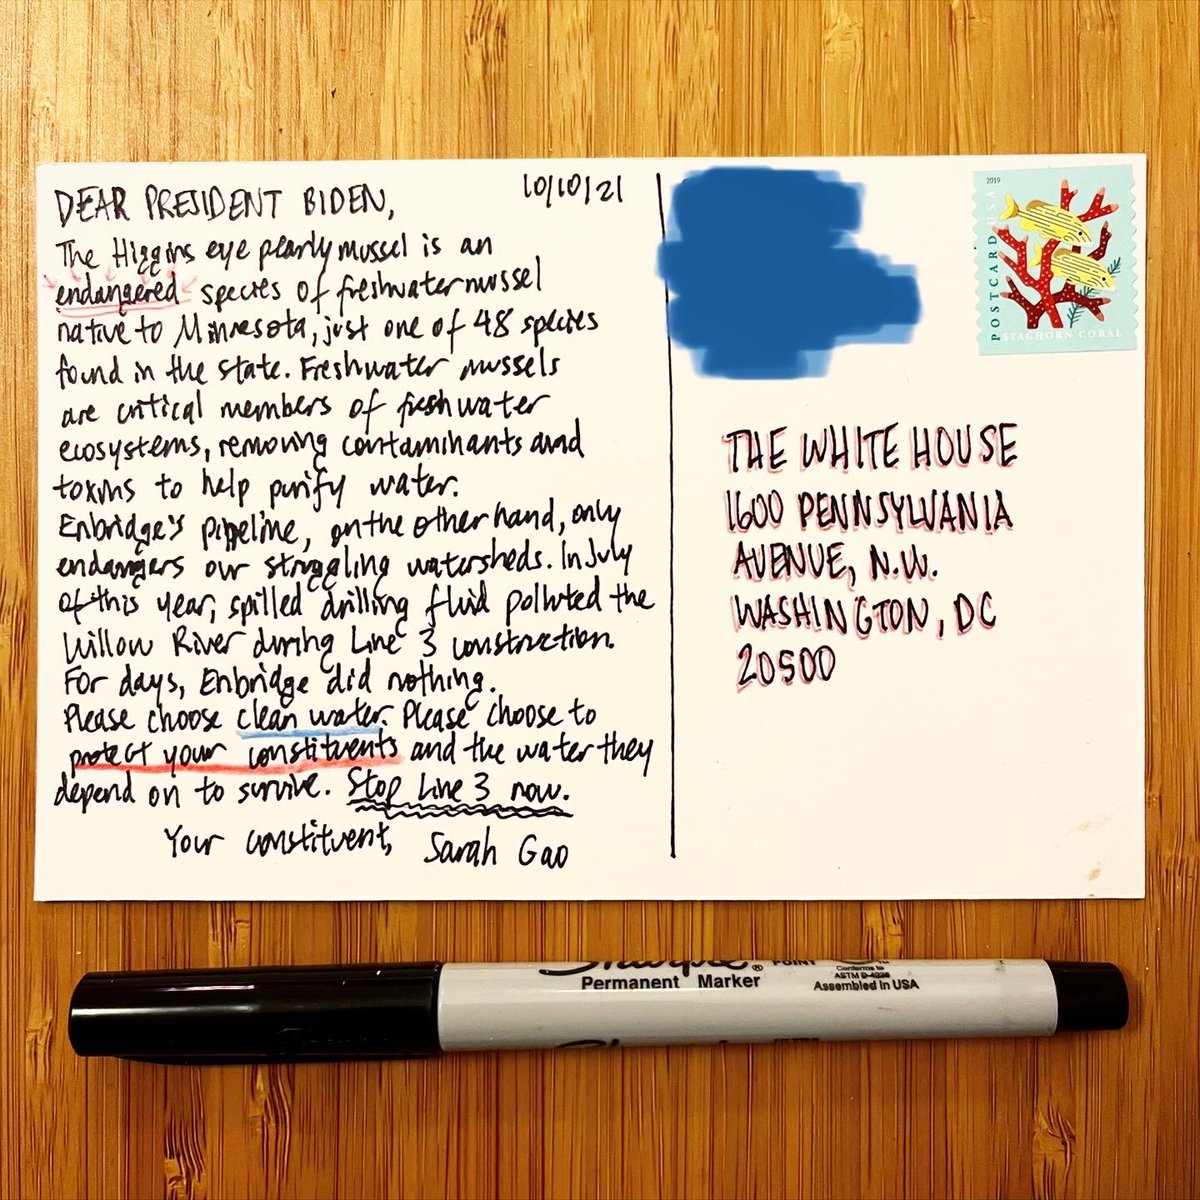 DEAR PRESIDENT BIDEN,
10/10/21
The Higgins eye pearlymussel is an
endangered species of freshwater mussel
native to Minnesota, just one of 48 species
found in the state. Freshwater mussels
are critical members of freshwater
ecosystems, removing contaminants and
toxins to help purify water.
Enbridge's pipeline, on the other hand, only
endangers our struggling watersheds. In July
of this year, spilled drilling fluid polluted the
Willow River during Line 3 construction.
For days, Enbridge did nothing.
Please choose clean water. Please choose to
protect your constituents and the water they
depend on to survive. Stop Line 3 now.
Your constituent, Sarah Gao
2019
POSTCARD USA
STAGHORN CORAL
THE WHITE HOUSE
1600 PENNSYLVANIA
AVENUE, N.W.
WASHINGTON, DC
20500
Sharpie®
POINT
Permanent Marker
Conforms to
ASTM D-4236
Assembled in USA